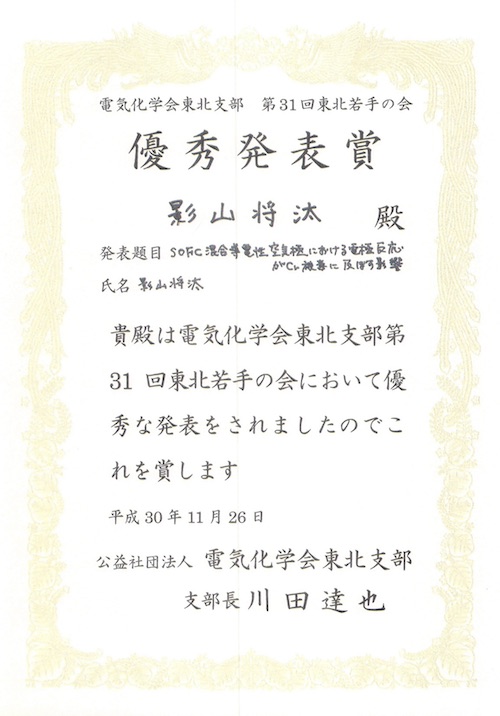 電気化学会東北支部　第31回東北若手の会
優秀発表賞
影山将汰　殿
発表題目 SOFC混合導電性空気極における電極反応
がCr被毒に及ぼす影響
氏名 影山将汰
貴殿は電気化学会東北支部第
31 回東北若手の会において優
秀な発表をされましたのでこ
れを賞します
平成 30 年 11 月 26 日
公益社団法人 電気化学会東北支部
支部長 川田達也